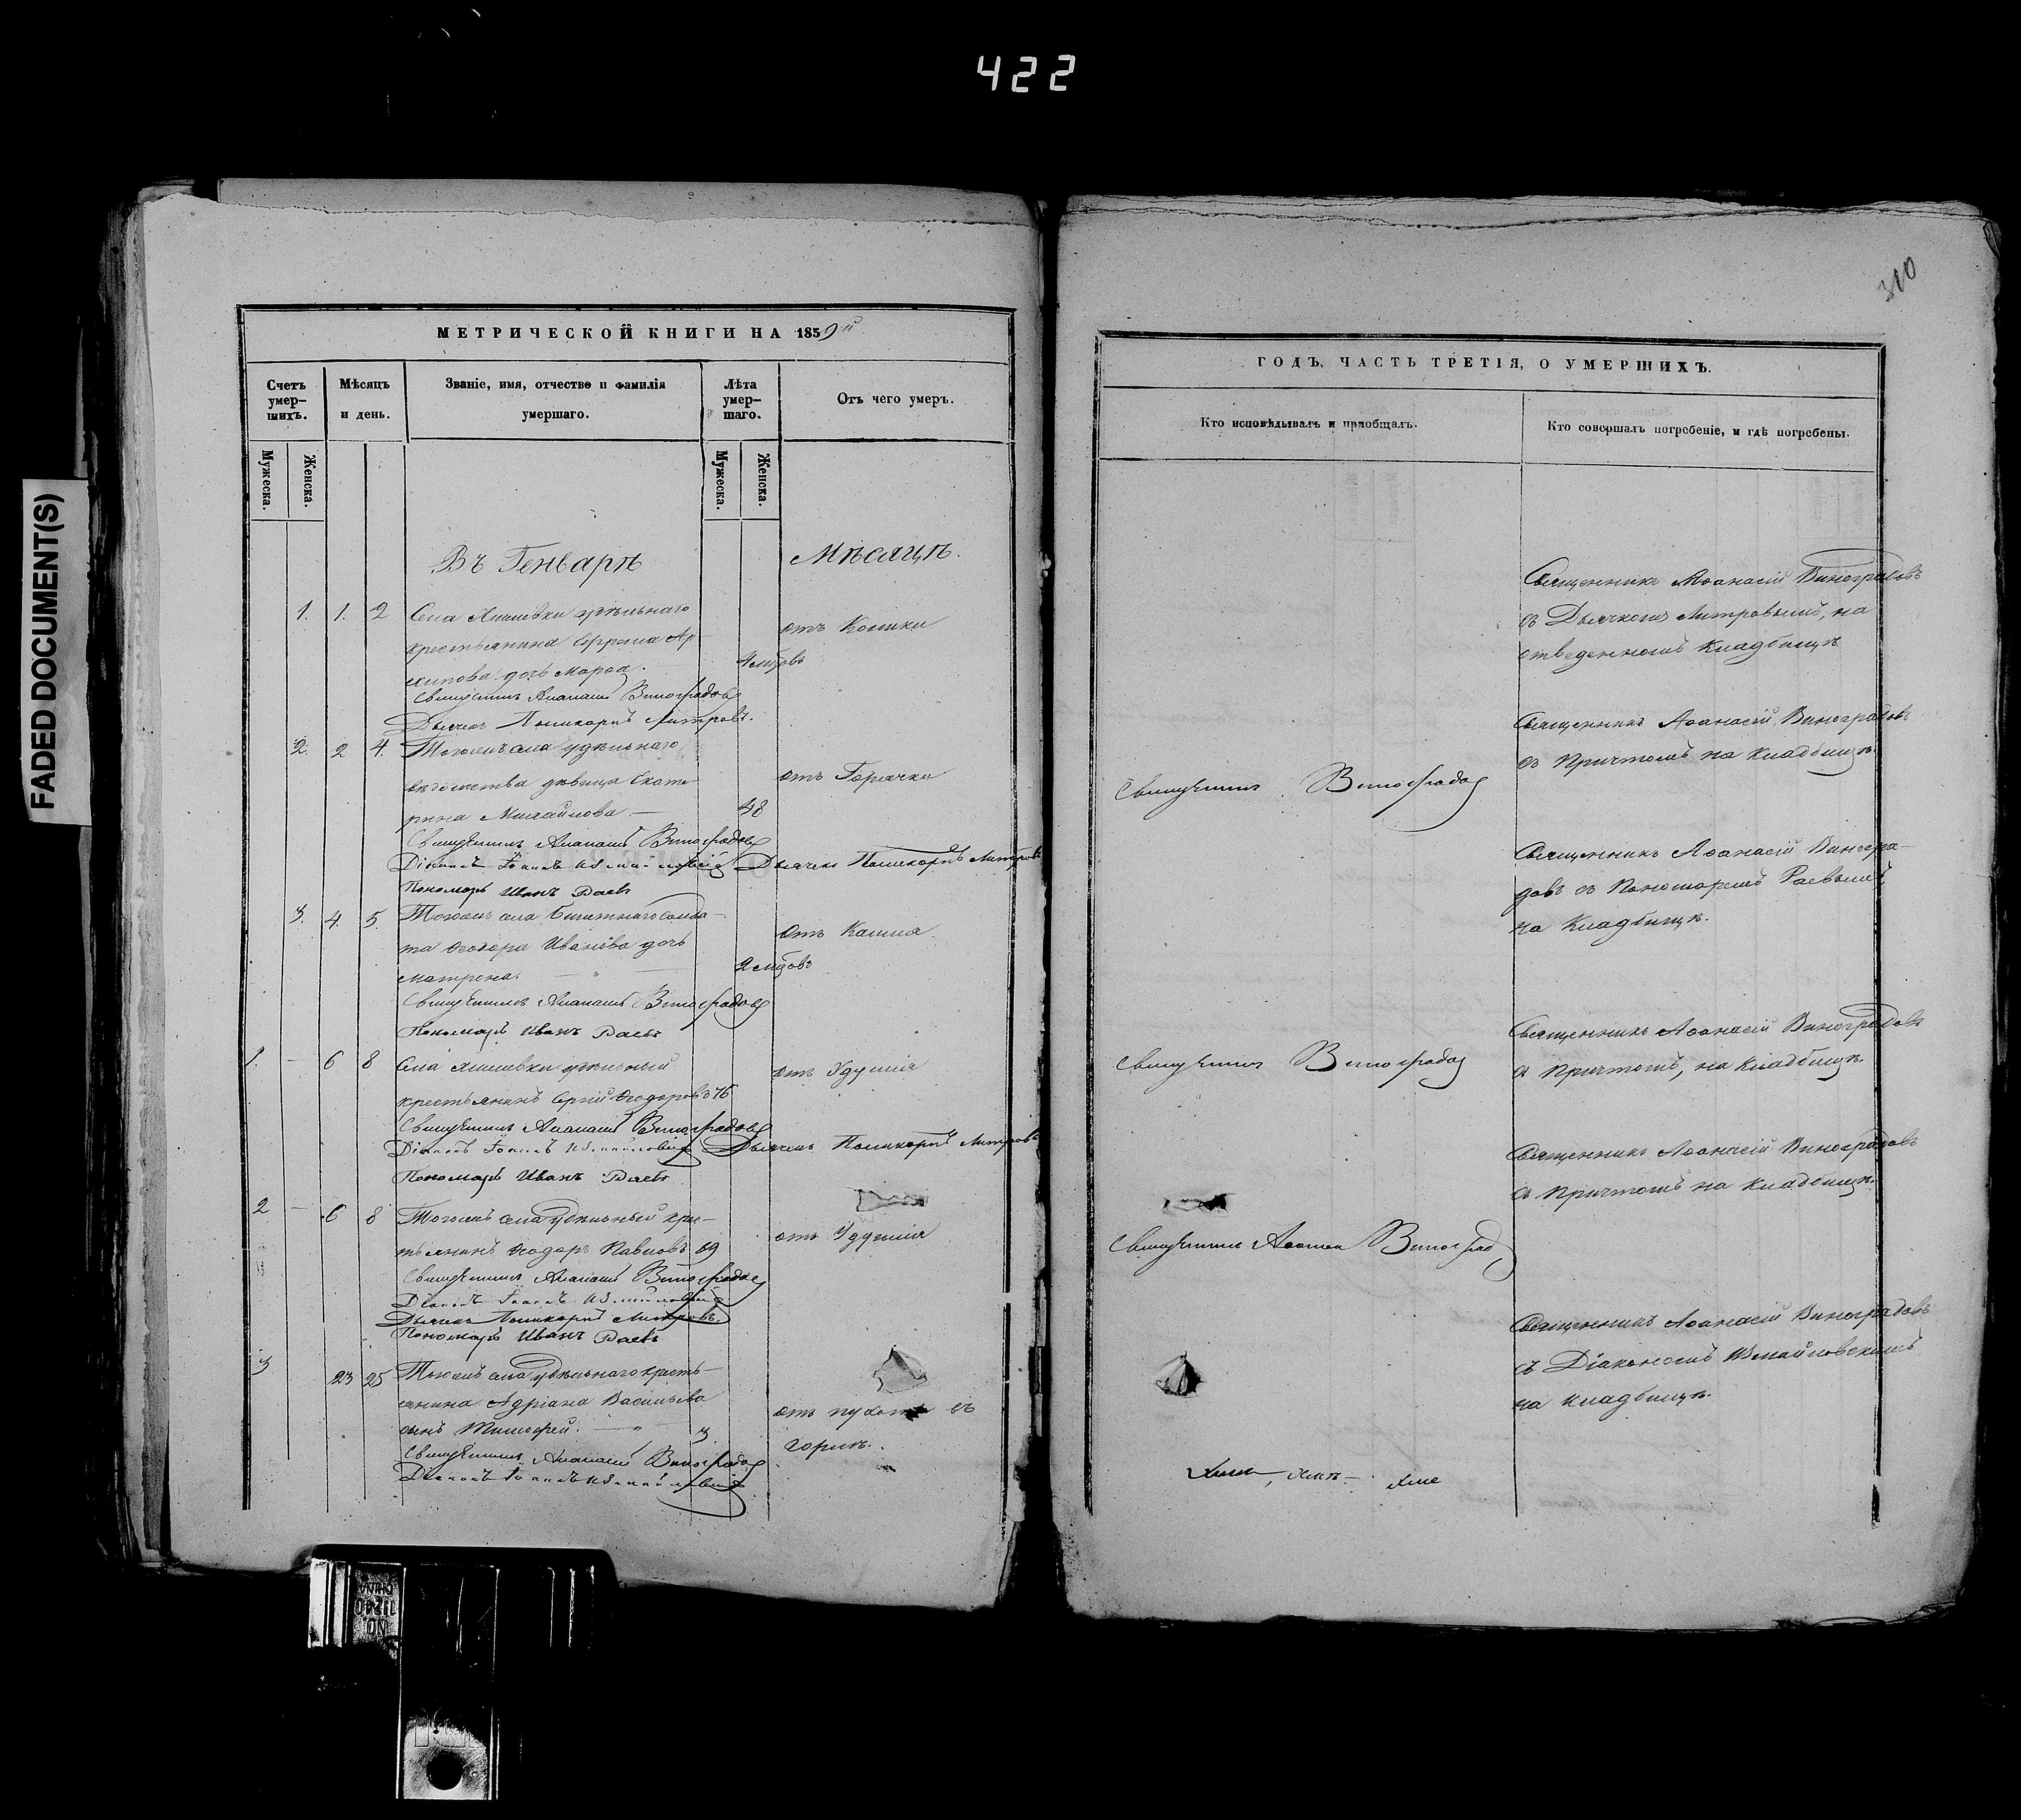 422
FADED DOCUMENT(S)
310
МЕТРИЧЕСКОЙ КНИГИ НА 1859й
Счетъ умер-шихъ.
Мѣсяцъ и день.
Званіе, имя, отчество и фамилія умершаго.
Лѣта умер-шаго.
Отъ чего умеръ.
Мужеска.
Женска.
Мужеска.
Женска.
Въ Генварѣ Мѣсяцѣ.
1. 1. 2 Села удѣльнаго
крестьянина Ефрема Ар-
хипова дочь Марѳа.
отъ Колики
Священникъ Аѳанасій Виноградовъ
Дьячекъ Поликарпъ Митровъ.
2. 2 4. Тогожъ села удѣльнаго
вѣдомства дѣвица Екате-
рина Михайлова — 48
отъ Горячки
Священникъ Аѳанасій Виноградовъ
Діаконъ Іоаннъ Измайловскій Дьячекъ Поликарпъ Митровъ
Пономарь Иванъ Раевъ
3. 4. 5. Тогожъ села Билетнаго Солда-
та Ѳеодора Иванова дочь
Матрена.
отъ Кашля
Священникъ Аѳанасій Виноградовъ
Пономарь Иванъ Раевъ
1. — 6 8 Села удѣльный
крестьянинъ Сергій Ѳеодоровъ 76
отъ Удушія
Священникъ Аѳанасій Виноградовъ
Діаконъ Іоаннъ Измайловскій Дьячекъ Поликарпъ Митровъ
Пономарь Иванъ Раевъ
2 — 6 8 Тогожъ села удѣльный крес-
тьянинъ Ѳеодоръ Павловъ 69
отъ Удушія
Священникъ Аѳанасій Виноградовъ
Діаконъ Іоаннъ Измайловскій
Дьячекъ Поликарпъ Митровъ.
Пономарь Иванъ Раевъ
3 23 25 Тогожъ села удѣльнаго кресть-
янина Адріана Васильева
сынъ Тимофей. — " 3
отъ въ
горлѣ.
Священникъ Аѳанасій Виноградовъ
Діаконъ Іоаннъ Измайловскій
ГОДЪ, ЧАСТЬ ТРЕТІЯ, О УМЕРШИХЪ.
Кто исповѣдывалъ и пріобщалъ.
Кто совершалъ погребеніе, и гдѣ погребены.
Священникъ Аѳанасій Виноградовъ
съ Дьячкомъ Митровымъ, на
отведенномъ Кладбищѣ
Священникъ Виноградовъ
Священникъ Аѳанасій Виноградовъ
съ Причтомъ на Кладбищѣ.
Священникъ Аѳанасій Виногра-
довъ съ Пономаремъ Раевымъ,
на Кладбищѣ.
Священникъ Виноградовъ
Священникъ Аѳанасій Виноградовъ
съ Причтомъ, на Кладбищѣ
Священникъ Виноградовъ
Священникъ Аѳанасій Виноградовъ
съ Причтомъ на Кладбищѣ.
Священникъ Аѳанасій Виноградовъ
съ Діакономъ Измайловскимъ
на кладбищѣ.